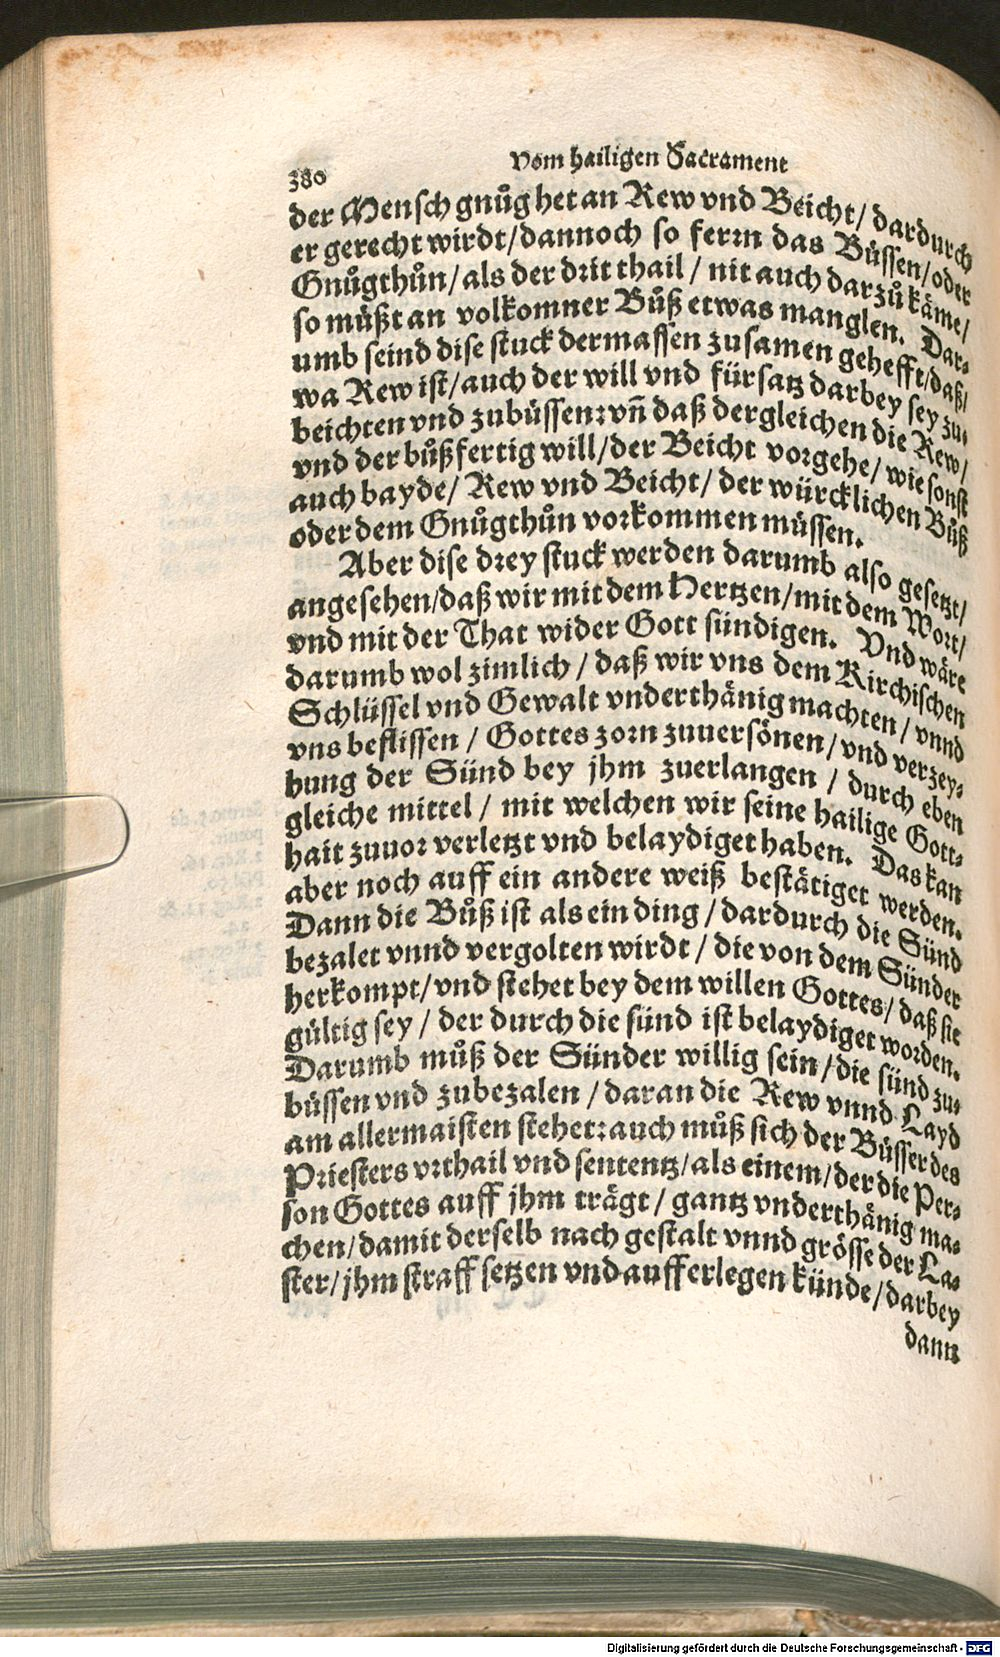 380
Vom hailigen Sacrament
der Mensch gnůg het an Rew vnd Beicht/ dardurch
er gerecht wirdt/ dannoch so ferrn das Büssen/ oder
Gnůgthůn/ als der drit thail/ nit auch darzů käme/
so müßt an volkomner Bůß etwas manglen. Dar-
umb seind dise stuck dermassen zusamen gehefft/ daß/
wa Rew ist/ auch der will vnd fürsatz darbey sey zu-
beichten vnd zubüssen: vñ daß dergleichen die Rew/
vnd der bůßfertig will/ der Beicht vorgehe/ wie sonst
auch bayde/ Rew vnd Beicht/ der würcklichen Bůß
oder dem Gnůgthůn vorkommen müssen.
Aber dise drey stuck werden darumb also gesetzt/
angesehen/ daß wir mit dem Hertzen/ mit dem Wort/
vnd mit der That wider Gott sündigen. Vnd wäre
darumb wol zimlich/ daß wir vns dem Kirchischen
Schlüssel vnd Gewalt vnderthänig machten/ vnnd
vns beflissen/ Gottes zorn zuuersönen/ vnd verzey-
hung der Sünd bey jhm zuerlangen/ durch eben
gleiche mittel/ mit welchen wir seine hailige Gott-
hait zuuor verletzt vnd belaydiget haben. Das kan
aber noch auff ein andere weiß bestätiget werden.
Dann die Bůß ist als ein ding/ dardurch die Sünd
bezalet vnnd vergolten wirdt/ die von dem Sünder
herkompt/ vnd stehet bey dem willen Gottes/ daß sie
gültig sey/ der durch die sünd ist belaydiget worden.
Darumb můß der Sünder willig sein/ die sünd zu-
büssen vnd zubezalen/ daran die Rew vnnd Layd
am allermaisten stehet: auch můß sich der Büsser des
Priesters vrthail vnd sententz/ als einem/ der die Per-
son Gottes auff jhm trägt/ gantz vnderthänig ma-
chen/ damit derselb nach gestalt vnnd grösse der La-
ster/ jhm straff setzen vnd aufferlegen künde/ darbey
dann
Digitalisierung gefördert durch die Deutsche Forschungsgemeinschaft - DFG